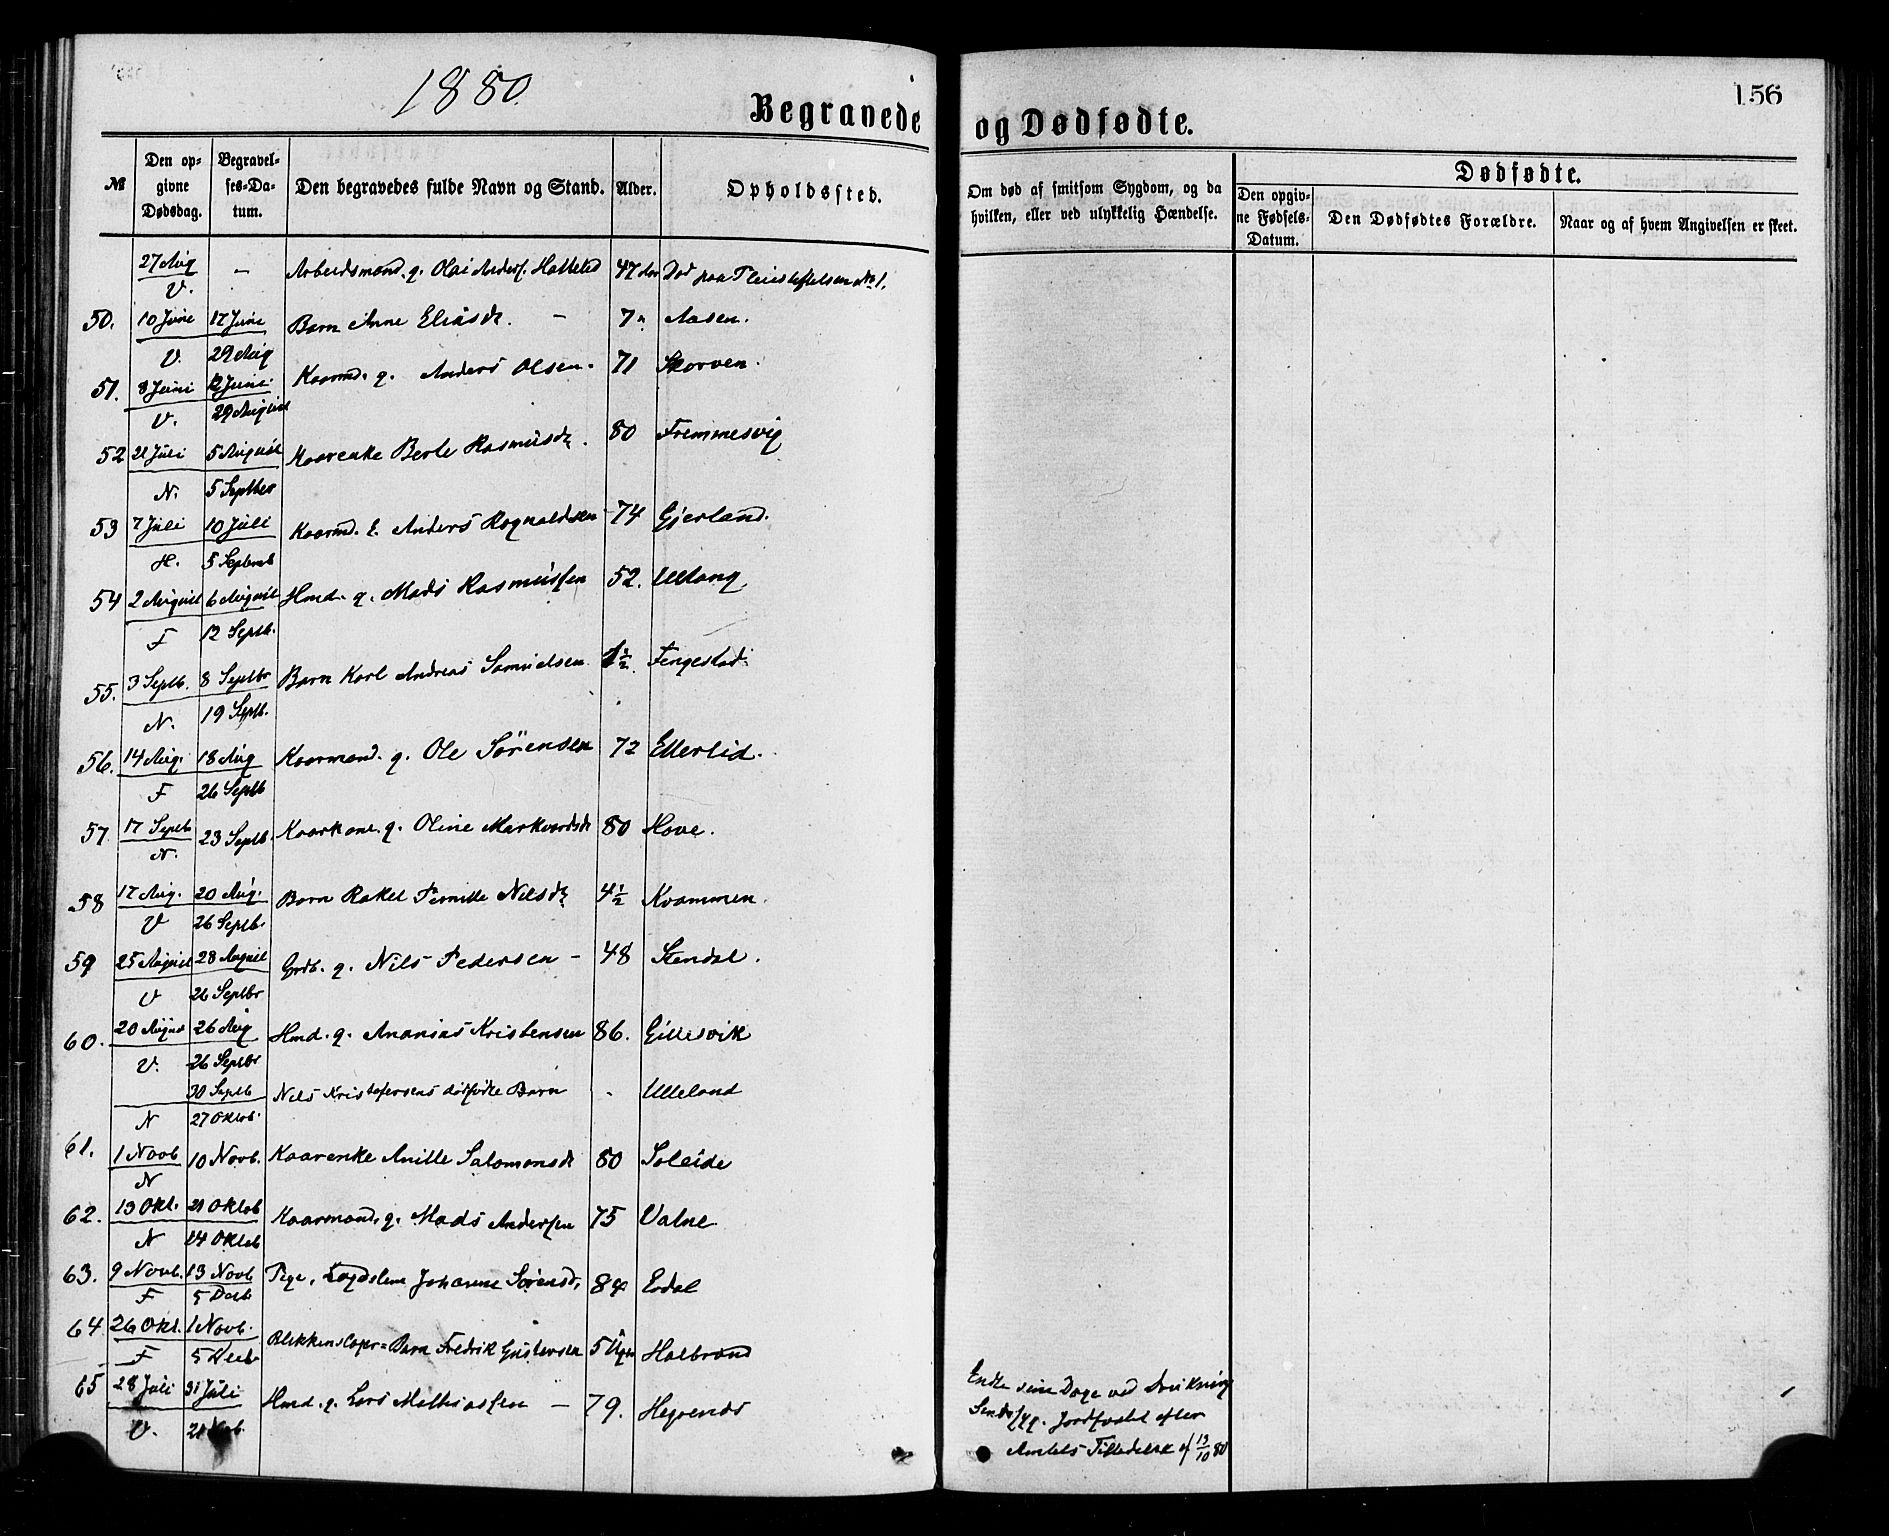 1880.
156
Begravede og Dødfødte.
№
Den opgivne Dødsdag.
Begravelses-Datum.
Den begravedes fulde Navn og Stand.
Alder.
Opholdssted.
Om død af smitsom Sygdom, og da hvilken, eller ved ulykkelig Hændelse.
Dødfødte.
Den opgivne Fødsels-Datum.
Den Dødfødtes Forældre.
Naar og af hvem Angivelsen er skeet.
27 Aug — Arbeidsmand. g. Olai Anders. 47 Aar Død paa
V.
50. 10 Juni 17 Juni Barn Anne Eliasdr. — 7 " Aasen.
V. 29 Aug
51. 8 Juni 12 Juni Kaarmd. g. Anders Olsen. 71 Skorven.
V. 29 August
52 21 Juli 5 August Kaarenke Berte Rasmusdr. 80 Fremmesvig
N. 5 Septber
53 7 Juli 10 Juli Kaarmd. E. Anders Rognaldsen 74 Gjerland.
H. 5 Septemb
54 2 August 6 August Hmd. g. Mads Rasmussen 52. Ullang
F 12 Septb.
55. 3 Septb. 8 Septbr Barn Karl Andreas Samuelsen 1½ Fengestad
N. 19 Septb.
56. 14 Aug. 18 Aug Kaarmand. g. Ole Sørensen 72 Ellerlid.
F 26 Septb
57. 17 Septb 23 Septb. Kaarkone. g. Oline Markvardsdr 80 Hove.
N.
58 17 Aug. 20 Aug. Barn Rakel Pernille Nilsdr 4½ Kvammen.
V 26 Septb.
59 25 August 28 August Grdb. g. Nils Pedersen — 48 Stendal.
V 26 Septbr
60. 20 August 26 Aug Hmd. g. Ananias Kristensen 86. Gillesvik
V. 26 Septbr
30 Septb Nils Kristofersens dødfødte Barn - Ulleland
N 27 Oktob.
61. 1 Novb 10 Novb. Kaarenke Anille Salomonsdr 80 Soleide
N
62. 13 Okt. 21 Oktob Kaarmand. g. Mads Andersen 75 Valne
N 24 Oktob
63. 9 Novb. 13 Novb Pige, Lægdslem Johanne Sørensd. 84 Erdal
F 5 Decb
64 26 Okt. 1 Novb. Blikkenslager = Barn Fredrik Gustavsen 5 Uger Halbrand
F 5 Decb
65 28 Juli 31 Juli Hmd. g. Lars Mathiassen — 79. Hegrenes
V. 21 Novb.
Endte sine Dage ved Drukning
Jordfæstet efter
Amtets Tilladelse af 13/10 80